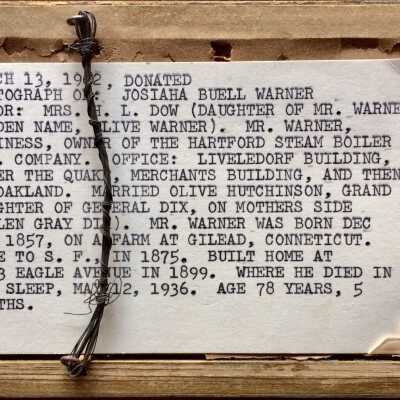 CH 13, 19 2, DONATED
TOGRAPH O : JOSIAHA BUELL WARNER
OR: MRS. H. L. DOW (DAUGHTER OF MR. WARNE
DEN NAME, OLIVE WARNER). MR. WARNER,
INESS, OWNER OF THE HARTFORD STEAM BOILER
. COMPANY. OFFICE: LIVELEDORF BUILDING,
ER THE QUAKE, MERCHANTS BUILDING, AND THEN
OAKLAND. MARRIED OLIVE HUTCHINSON, GRAND
GHTER OF GENERAL DIX, ON MOTHERS SIDE
LEN GRAY DIX). MR. WARNER WAS BORN DEC
1857, ON A FARM AT GILEAD, CONNETICUT.
E TO S. F., IN 1875. BUILT HOME AT
3 EAGLE AVENUE IN 1899. WHERE HE DIED IN
SLEEP, MAY 12, 1936. AGE 78 YEARS, 5
THS.